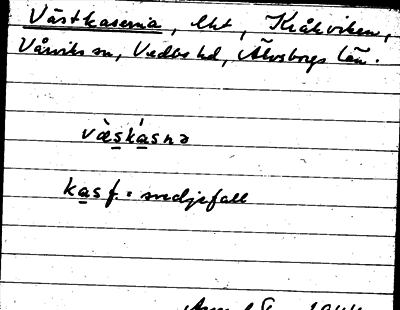 Västkaserna, lht, Kråkviken,
Vårviks sn, Vedbo hd, Älvsborgs län.
væskasnə
kas f. = svedjefall